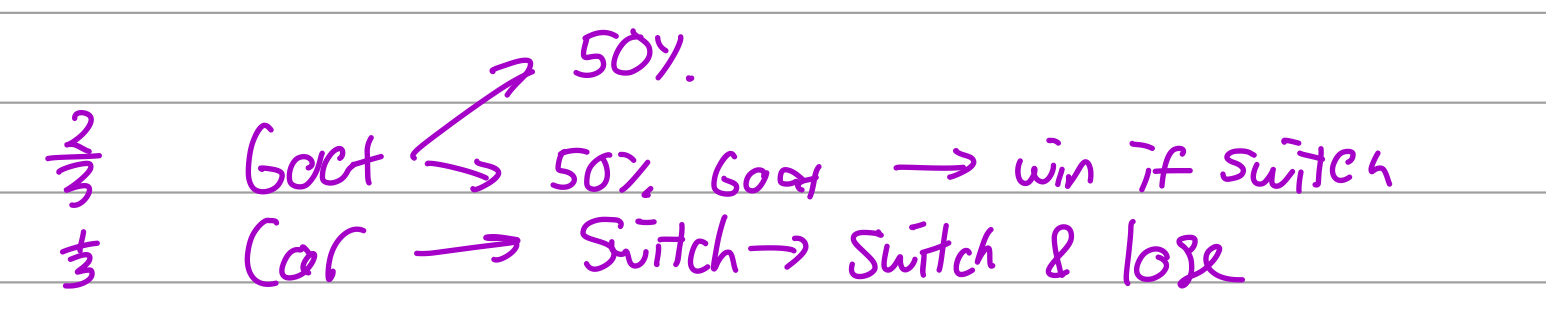 50%.
2/3 Goat → 50% Goat → win if switch
1/3 Car → Switch → Switch & lose